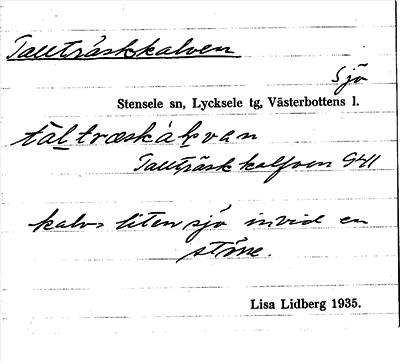 Tallträskkalven
Sjö
Stensele sn, Lycksele tg, Västerbottens l.
Tallträsk kalfven G41
kalv = liten sjö invid en
större.
Lisa Lidberg 1935.